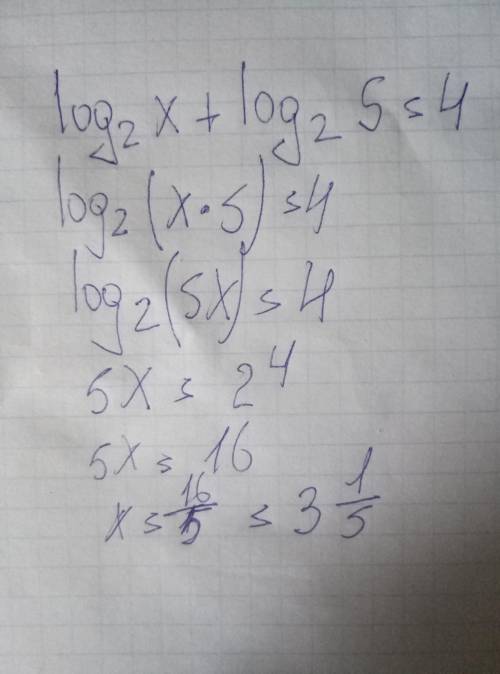 log₂ x + log₂ 5 = 4
log₂ (x · 5) = 4
log₂ (5x) = 4
5x = 2⁴
5x = 16
x = 16/5 = 3 1/5